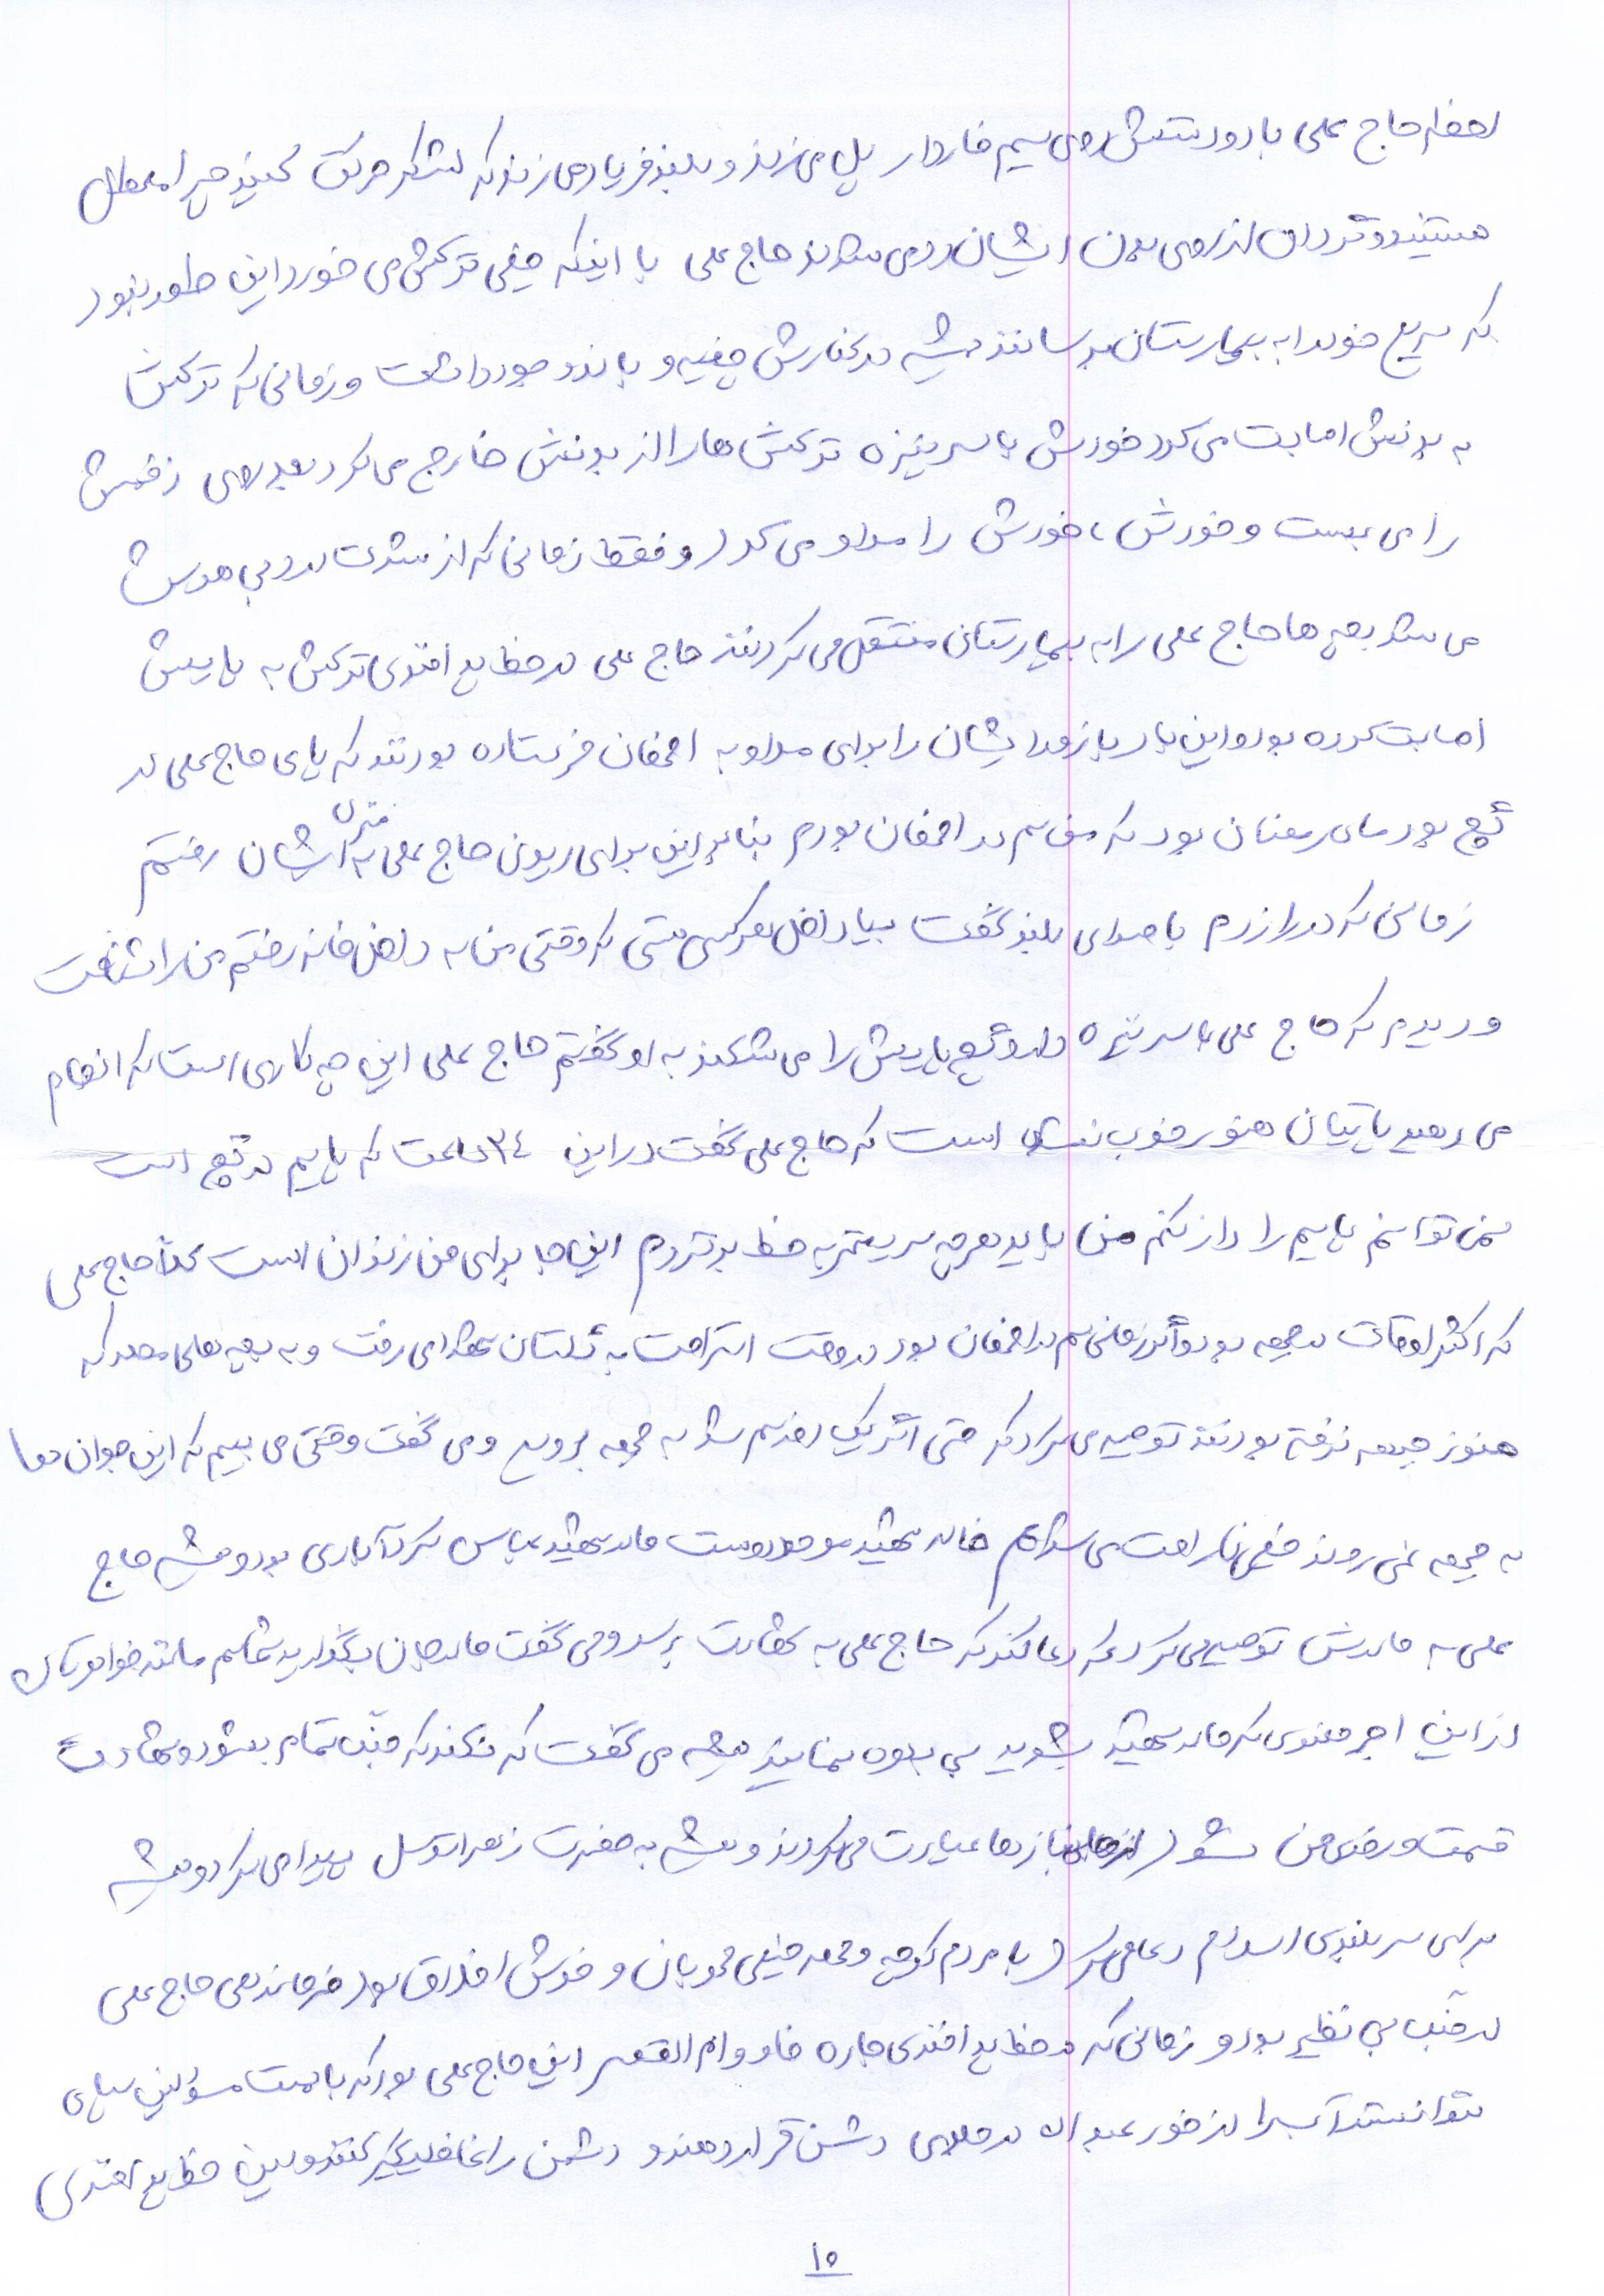 لحظه حاج علی با دو دستش روی سیم خاردار پل می زند و بلند فریاد می زند که لشکر حرکت کنید چرا معطل
هستید و گردان از روی بدن ایشان رد می شوند حاج علی با اینکه خیلی ترکش می خورد این طور نبود
که سریع خود را به بیمارستان برساند همیشه در کنارش چفیه و باند وجود داشت و زمانی که ترکش
به بدنش اصابت می کرد خودش با سرنیزه ترکش ها را از بدنش خارج می کرد بعد روی زخمش
را می بست و خودش، خودش را مداوا می کرد و فقط زمانی که از شدت درد بی هوش
می شد بچه ها حاج علی را به بیمارستان منتقل می کردند حاج علی در خط پدافندی ترکش به پایش
اصابت کرده بود و این بار با زور ایشان را برای مداوا به اصفهان فرستاده بودند که پای حاج علی در
گچ بود ماه رمضان بود که من هم در اصفهان بودم بنابراین برای دیدن حاج علی به منزل ایشان رفتم
زمانی که در را زدم با صدای بلند گفت بیا داخل هر کسی هستی که وقتی من به داخل خانه رفتم من را شناخت
و دیدم که حاج علی با سرنیزه دارد گچ پایش را می شکند به او گفتم حاج علی این چه کاری است که انجام
می دهید پایتان هنوز خوب نشده است که حاج علی گفت در این ۲۴ ساعت که پایم در گچ است
نمی توانم پایم را دراز کنم من باید هر چه سریعتر به خط برگردم این جا برای من زندان است حاج علی
که اکثر اوقات در جبهه بود و اگر زمانی هم در اصفهان بود در وقت استراحت به گلستان شهدا می رفت و به بچه های محله که
هنوز جبهه نرفته بودند توصیه می کرد که حتی اگر یک روز هم شده به جبهه بروید و می گفت وقتی می بینم که این جوان ها
به جبهه نمی روند خیلی ناراحت می شوم مادر شهید موحد دوست مادر شهید عباس کردآبادی بود و همیشه حاج
علی به مادرش توصیه می کرد که دعا کند که حاج علی به شهادت برسد و می گفت مادر جان بگذارید شما هم مانند خواهرتان
از این اجر معنوی که مادر شهید بشوید بی بهره نمانید همیشه می گفت که نکند که جنگ تمام بشود و شهادت
قسمت و رضی من نشود از جانبازها عیادت می کردند و همیشه به حضرت زهرا توسل پیدا می کرد و همیشه
برای سربلندی اسلام دعا می کرد با مردم کوچه و محله خیلی مهربان و خوش اخلاق بود فرماندهی حاج علی
در جنگ بی نظیر بود و زمانی که در خط پدافندی جاده فاو و ام القصر این حاج علی بود که با همت مسئولین سپاه
توانستند آب را از خور عبدالله در جلوی دشمن قرار دهند و دشمن را غافلگیر کنند و بین خط پدافندی
۱۵